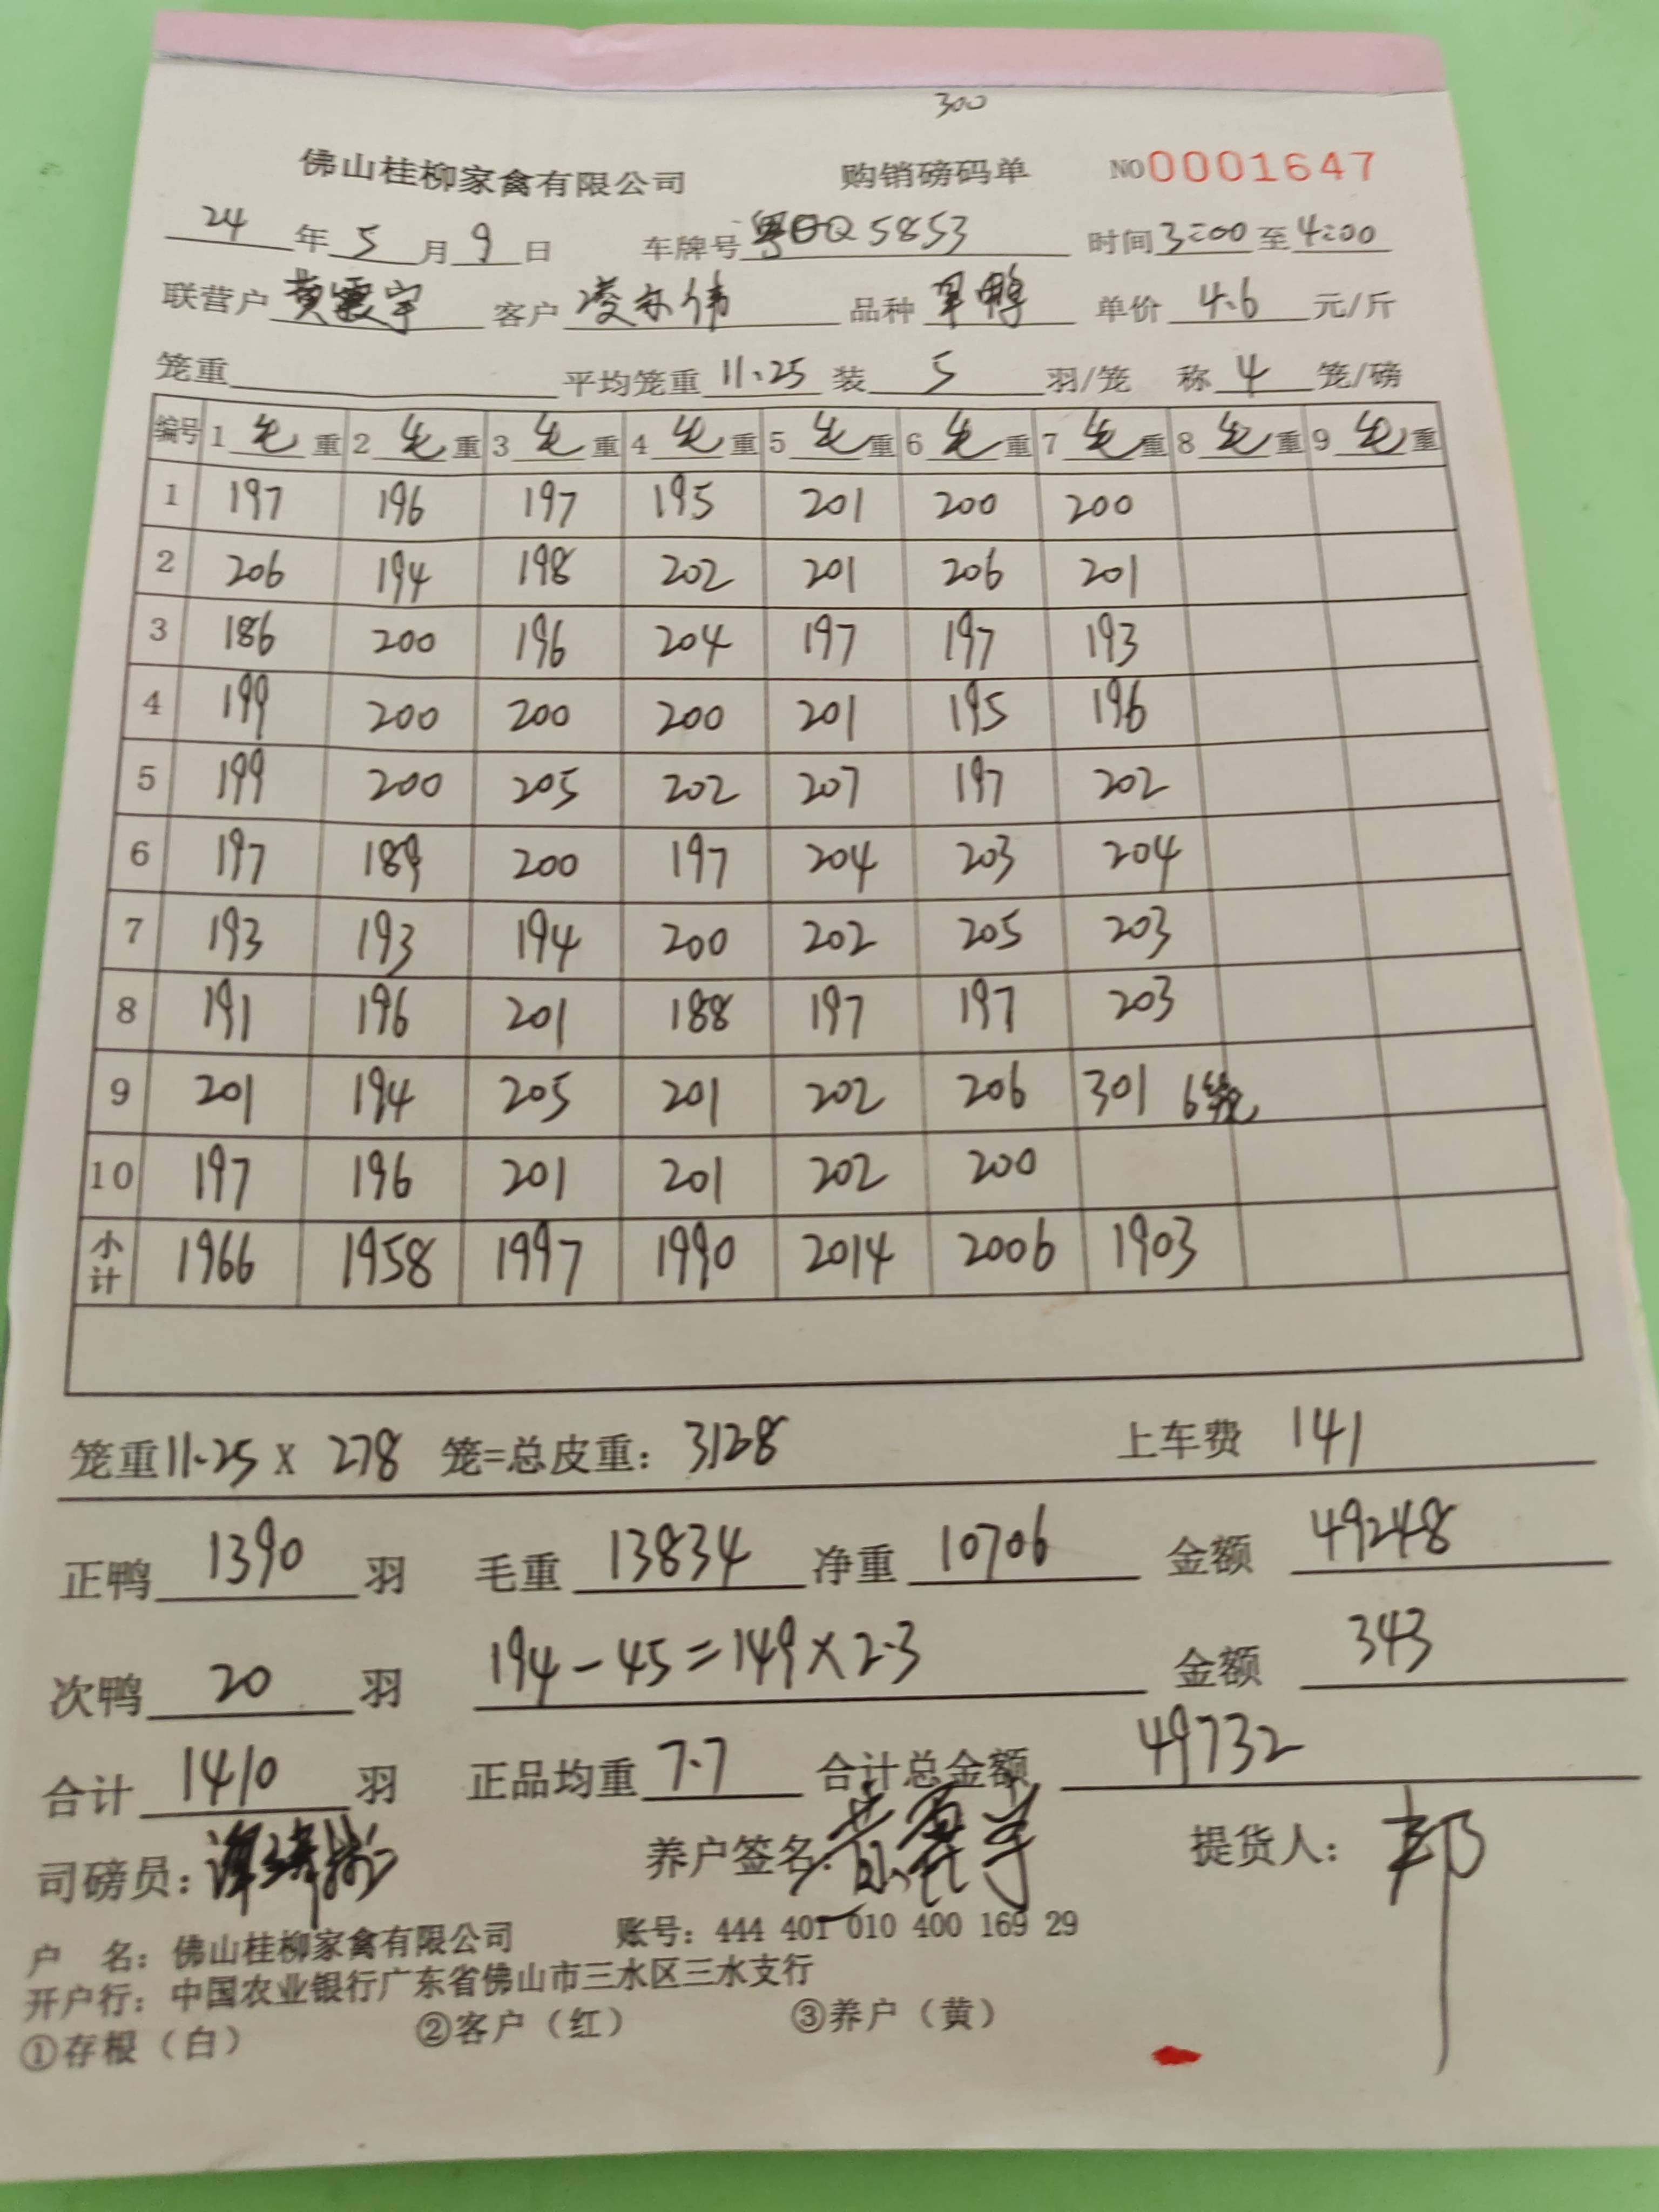 300
佛山桂柳家禽有限公司 购销磅码单 NO 0001647
24 年 5 月 9 日 车牌号 粤 Q5853 时间 3:00 至 4:00
联营户 黄震宇 客户 凌 伟 品种 鸭 单价 4.6 元/斤
笼重 平均笼重 11.25 装 5 羽/笼 称 4 笼/磅
编号 1 毛 重 2 毛 重 3 毛 重 4 毛 重 5 毛 重 6 毛 重 7 毛 重 8 毛 重 9 毛 重
1 197 196 197 195 201 200 200
2 206 194 198 202 201 206 201
3 186 200 196 204 197 197 193
4 199 200 200 200 201 195 196
5 199 200 205 202 207 197 202
6 197 189 200 197 204 203 204
7 193 193 194 200 202 205 203
8 191 196 201 188 197 197 203
9 201 194 205 201 202 206 301 6笼
10 197 196 201 201 202 200
小计 1966 1958 1997 1990 2014 2006 1903
笼重 11.25 X 278 笼=总皮重: 3128 上车费 141
正鸭 1390 羽 毛重 13834 净重 10706 金额 49248
次鸭 20 羽 194-45=149×2.3 金额 343
合计 1410 羽 正品均重 7.7 合计总金额 49732
司磅员: 养户签名: 黄震宇 提货人:
户 名: 佛山桂柳家禽有限公司 账号: 444 401 010 400 169 29
开户行: 中国农业银行广东省佛山市三水区三水支行
①存根（白） ②客户（红） ③养户（黄）